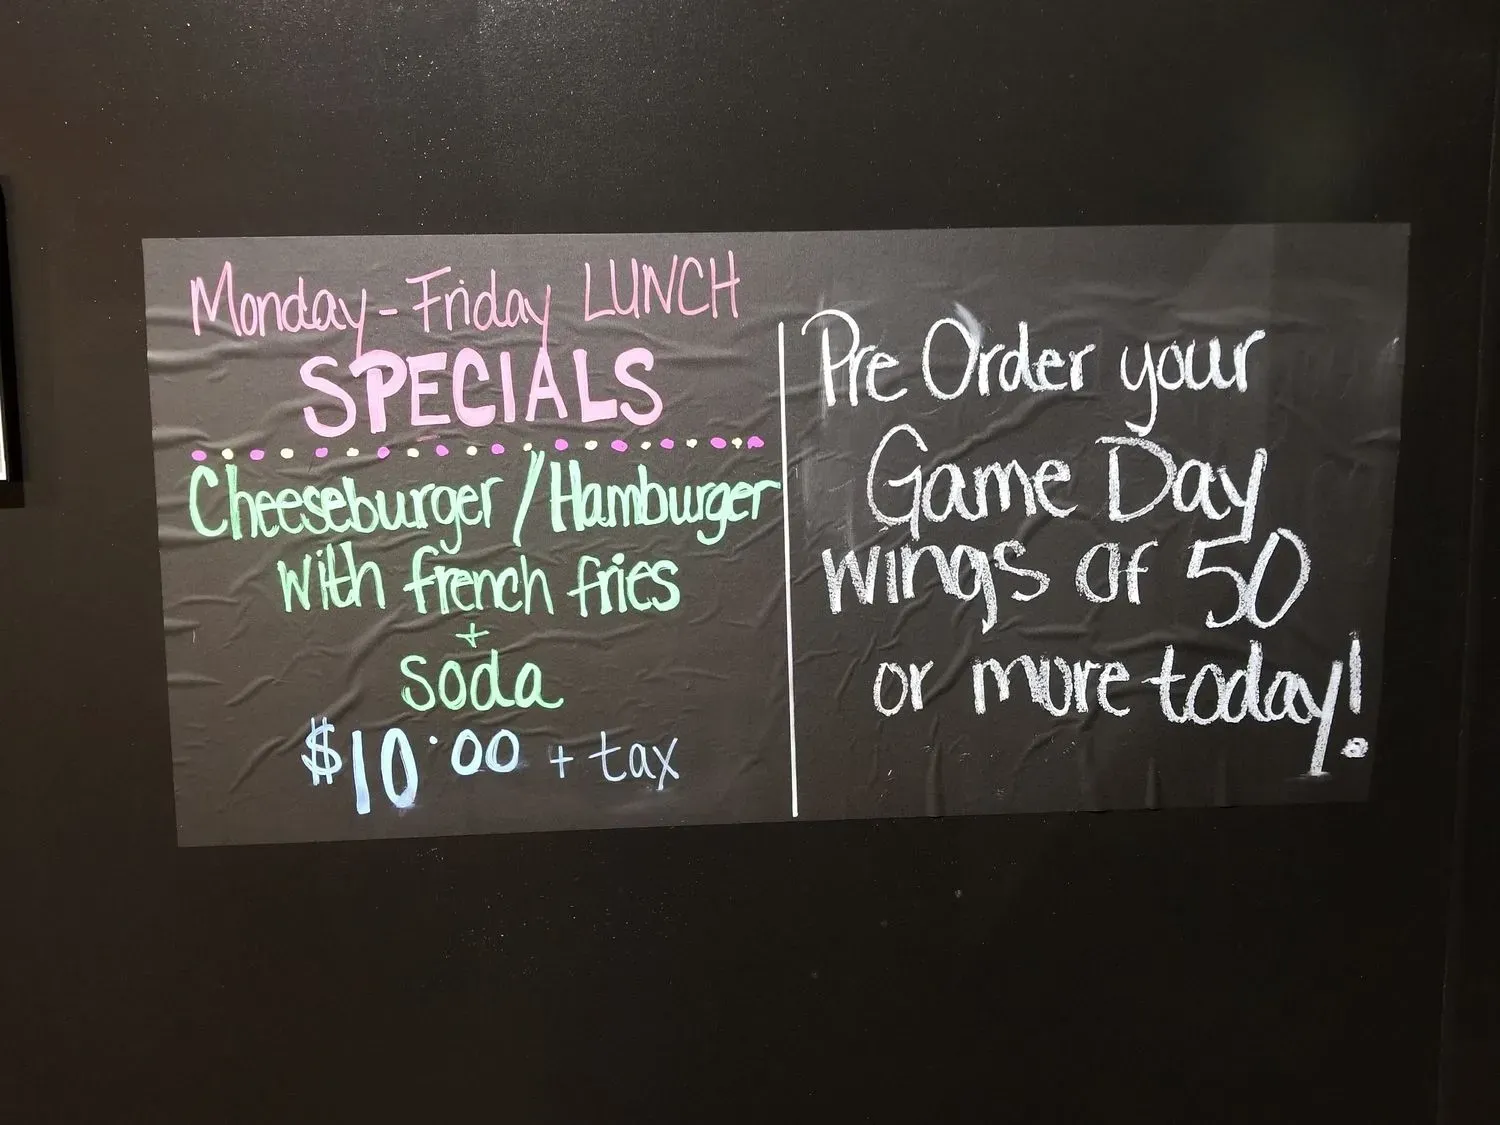 Monday-Friday LUNCH
SPECIALS
Cheeseburger/Hamburger
with french fries
+
soda
$10.00 + tax
Pre Order your
Game Day
wings of 50
or more today!